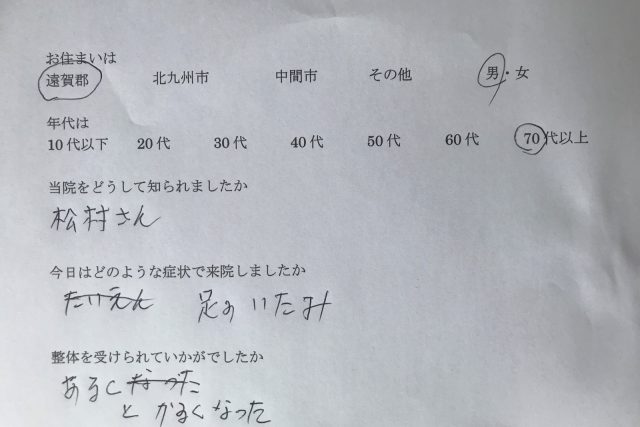 お住まいは
遠賀郡 北九州市 中間市 その他 男・女
年代は
10代以下 20代 30代 40代 50代 60代 70代以上
当院をどうして知られましたか
松村さん
今日はどのような症状で来院しましたか
たいえん 足のいたみ
整体を受けられていかがでしたか
あるくなった
とかるくなった